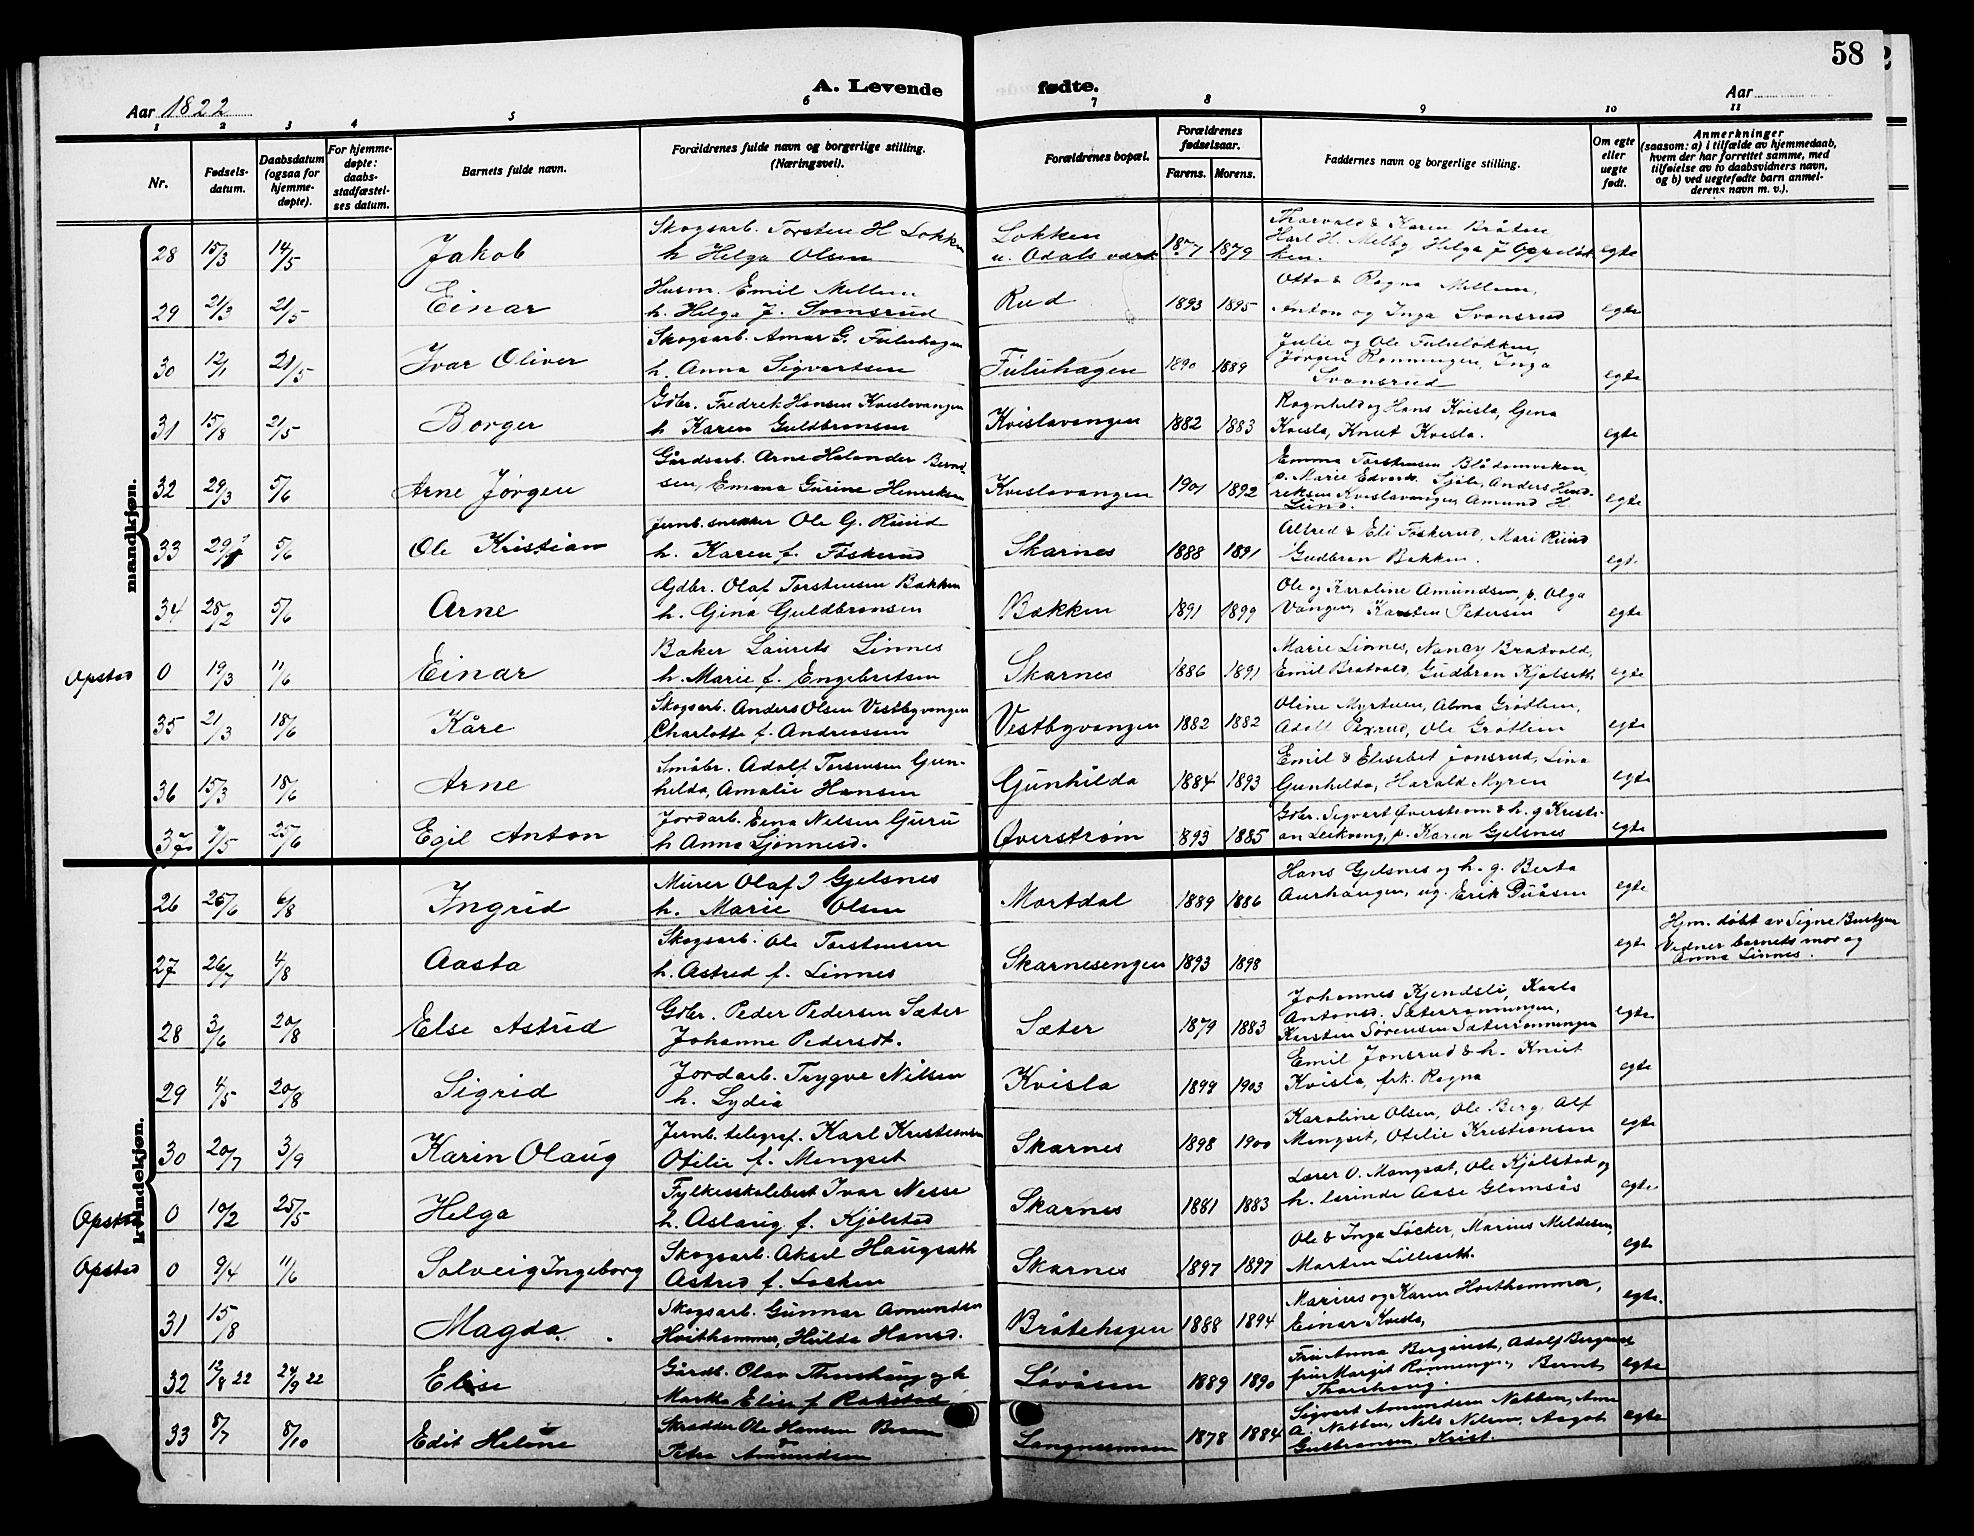 58
A. Levende fødte.
Aar 1822
Aar
1 2 3 4 5 6 7 8 9 10 11
Nr.
Fødsels-
datum.
Daabsdatum
(ogsaa for
hjemme-
døpte).
For hjemme-
døpte:
daabs-
stadfæstel-
ses datum.
Barnets fulde navn.
Forældrenes fulde navn og borgerlige stilling.
(Næringsvei).
Forældrenes bopæl.
Forældrenes
fødselsaar.
Farens. Morens.
Faddernes navn og borgerlige stilling.
Om egte
eller
uegte
født.
Anmerkninger
(saasom: a) i tilfælde av hjemmedaab,
hvem der har forrettet samme, med
tilføielse av to daabsvidners navn,
og b) ved uegtefødte barn anmel-
derens navn m. v.).
mandkjøn.
28 15/3 14/5 Jakob Skogsarb. Torsten H Løkken
h Helga Olsen
Løkken
u. Odals værk 1877 1879 Thorvald & Karen Bråten
Karl H. Melby Helga J Oppeløk-
ken. egte
29 21/3 21/5 Einar Husm. Emil Mellem
h. Helga J. Svensrud
Rud 1893 1895 Otto & Ragna Mellem,
Anton og Inga Svensrud egte
30 12/1 21/5 Ivar Oliver Skogsarb. Amar G. Fuluhagen
h. Anna Sigvartsen
Fuluhagen 1890 1889 Julie og Ole Fululøkken,
Jørgen Rønningen, Inga
Svansrud egte
31 15/8 21/5 Borger Gdbr. Fredrek Hansen Kvislavangen
h Karen Guldbransen
Kvislavangen 1882 1883 Ragnhild og Hans Kvisla, Gina
Kvisla, Knut Kvisla. egte
32 29/3 5/6 Arne Jørgen Gårdsarb. Arne Helander Bernd-
sen, Emma Gurine Henriksen
Kvislavangen 1901 1892 Emma Torstensen
p. Marie Edvards. Sjøli, Anders Hend-
reksen Kvislavangen Amund H.
Lund. egte
33 5/6 Ole Kristian Jernb. snekker Ole G. Ruud
h. Karen f. Foskerud
Skarnes 1888 1891 Alfred & Eli Foskerud, Mari Ruud
Gudbran Bakken. egte
34 25/2 5/6 Arne Gdbr. Olaf Torstensen Bakken
h. Gina Guldbransen
Bakken 1891 1899 Ole og Karoline Amundsen, p. Olga
Vangen, Karsten Petersen egte
Opstad 0 19/3 11/6 Einar Baker Laurets Linnes
h. Marie f. Engebretsen
Skarnes 1886 1891 Marie Linnes, Nancy Bratvold,
Emil Bratvold, Gudbran Kjølseth egte
35 21/3 18/6 Kåre Skogsarb. Anders Olsen Vestbyvangen
Charlotte f. Andreassen
Vestbyvangen 1882 1882 Oline Myrtuen, Alma Grøtlien,
Adolf Pexrud, Ole Grøtlien egte
36 15/3 18/6 Arne Småbr. Adolf Torstensen Gun-
hilda, Amalie Hansen
Gunhilda 1884 1893 Emil & Elisebet Jonsrud, Lina
Gunhilda, Harald Myren egte
37 7/5 25/6 Egil Anton Jordarb. Eina Nilsen Guru
h Anna Sjønnesd.
Øverstrøm 1893 1885 Gdbr. Sigvart Øverstrøm & h. g Kristi-
an Leikvang, p. Karen Gjelsnes egte
kvindekjøn.
26 25/6 6/8 Ingrid Murer Olaf J Gjelsnes
h. Marie Olsen
Mortdal 1889 1886 Hans Gjelsnes og h. g. Berta
Aurhaugen, ug. Erik Duåsen egte
27 26/7 4/8 Aasta Skogsarb. Ole Torstensen
h. Astrid f. Linnes
Skarnesengen 1893 1898 egte Hjm. døbt av Signe Bentzen
Vidner barnets mor og
Anna Linnes.
28 3/6 20/8 Else Astrid Gdbr. Peder Pedersen Sæter
Johanne Pedersdt.
Sæter 1879 1883 Johannes Kjendsli, Karla
Antonsd. Sæterrønningen,
Karsten Sørensen Sæterrønningen egte
29 4/5 20/8 Sigrid Jordarb. Trygve Nilsen
h. Lydia
Kvisla 1899 1903 Emil Jonsrud & h. Knut
Kvisla, frk. Ragna egte
30 20/7 3/9 Karin Olaug Jernb. telegraf. Karl Kristiansen
Otilie f. Mengset
Skarnes 1898 1900 Karoline Olsen, Ole Berg, Alf
Mengset, Otilie Kristiansen egte
Opstad 0 10/2 25/5 Helga Fylkesskolebest Ivar Nesse
h. Aslaug f. Kjølstad
Skarnes 1881 1883 Lærer O. Mangset, Ole Kjølstad og
h. lærinde Aase Glomsås egte
Opstad 0 9/4 11/6 Solveig Ingeborg Skogsarb. Aksel Haugseth
Astrid f. Løcken
Skarnes 1897 1897 Ole & Inga Løcker, Marius Meldesen,
Marten Lilleseth. egte
31 15/8 Magda. Skogsarb. Gunnar Amundsen
Hvithammer, Hulda Hansd.
Bråtehagen 1888 1894 Marius og Karen Hvithammer,
Einar Kvisla, egte.
32 12/8 22 24/9 22 Elise Gårdb. Olav Thorshaug og h
Martha Elise f Rakstad
Løvåsen 1889 1890 Fru Anna Bergquist, Adolf Bergquist
fru Margit Rønningen, Bernt
Thorshaug. egte
33 8/7 8/10 Edit Helene Skrædder Ole Hansen
Petra Amundsen
1878 1884 Sigvart Amundsen Nabben, Arne
A. Nabben, Nils Nilsen, Aagot
Gulbransen, Krist. egte